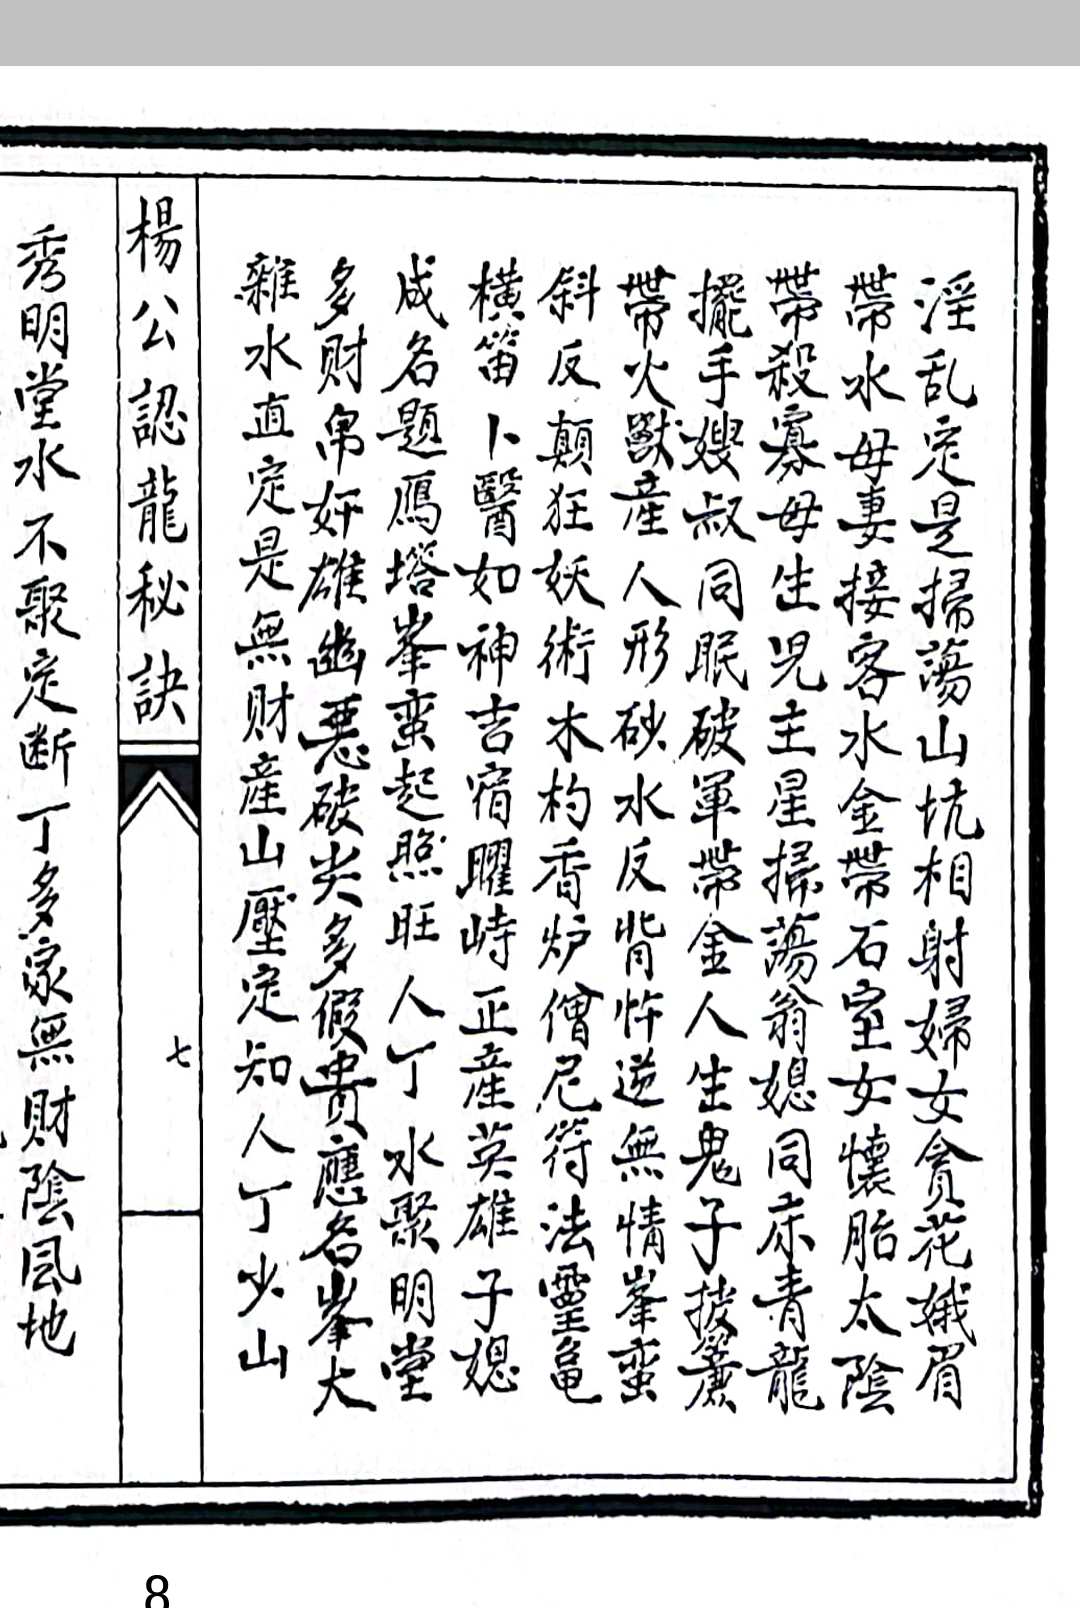 淫乱定是掃蕩山坑相射婦女貪花娥眉
帶水母妻接客水金帶石室女懷胎太陰
帶殺寡母生児主星掃蕩翁媳同床青龍
擺手嫂叔同眠破軍帶金人生鬼子披蔴
帶火獸產人形砂水反背忤逆無情峯蛮
斜反顛狂妖術木杓香炉僧尼符法靈龜
橫笛卜醫如神吉宿曜峙正產英雄子媳
成名題鴈塔峯蛮起照旺人丁水聚明堂
多財帛奸雄凶惡破尖多假貴應名峯大
雜水直定是無財產山壓定知人丁少山
楊公認龍秘訣
七
秀明堂水不聚定断丁多家無財陰風地
8